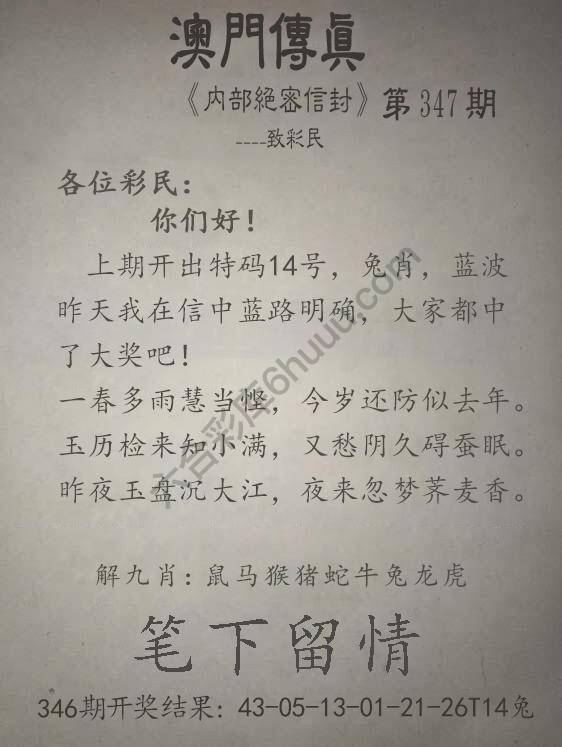 澳門傳眞
《内部絕密信封》第347期
----致彩民
各位彩民：
你们好！
上期开出特码14号，兔肖，蓝波
昨天我在信中蓝路明确，大家都中
了大奖吧！
一春多雨慧当悭，今岁还防似去年。
玉历检来知小满，又愁阴久碍蚕眠。
昨夜玉盘沉大江，夜来忽梦荞麦香。
六合彩库6huuu.com
解九肖：鼠马猴猪蛇牛兔龙虎
笔下留情
346期开奖结果：43-05-13-01-21-26T14兔